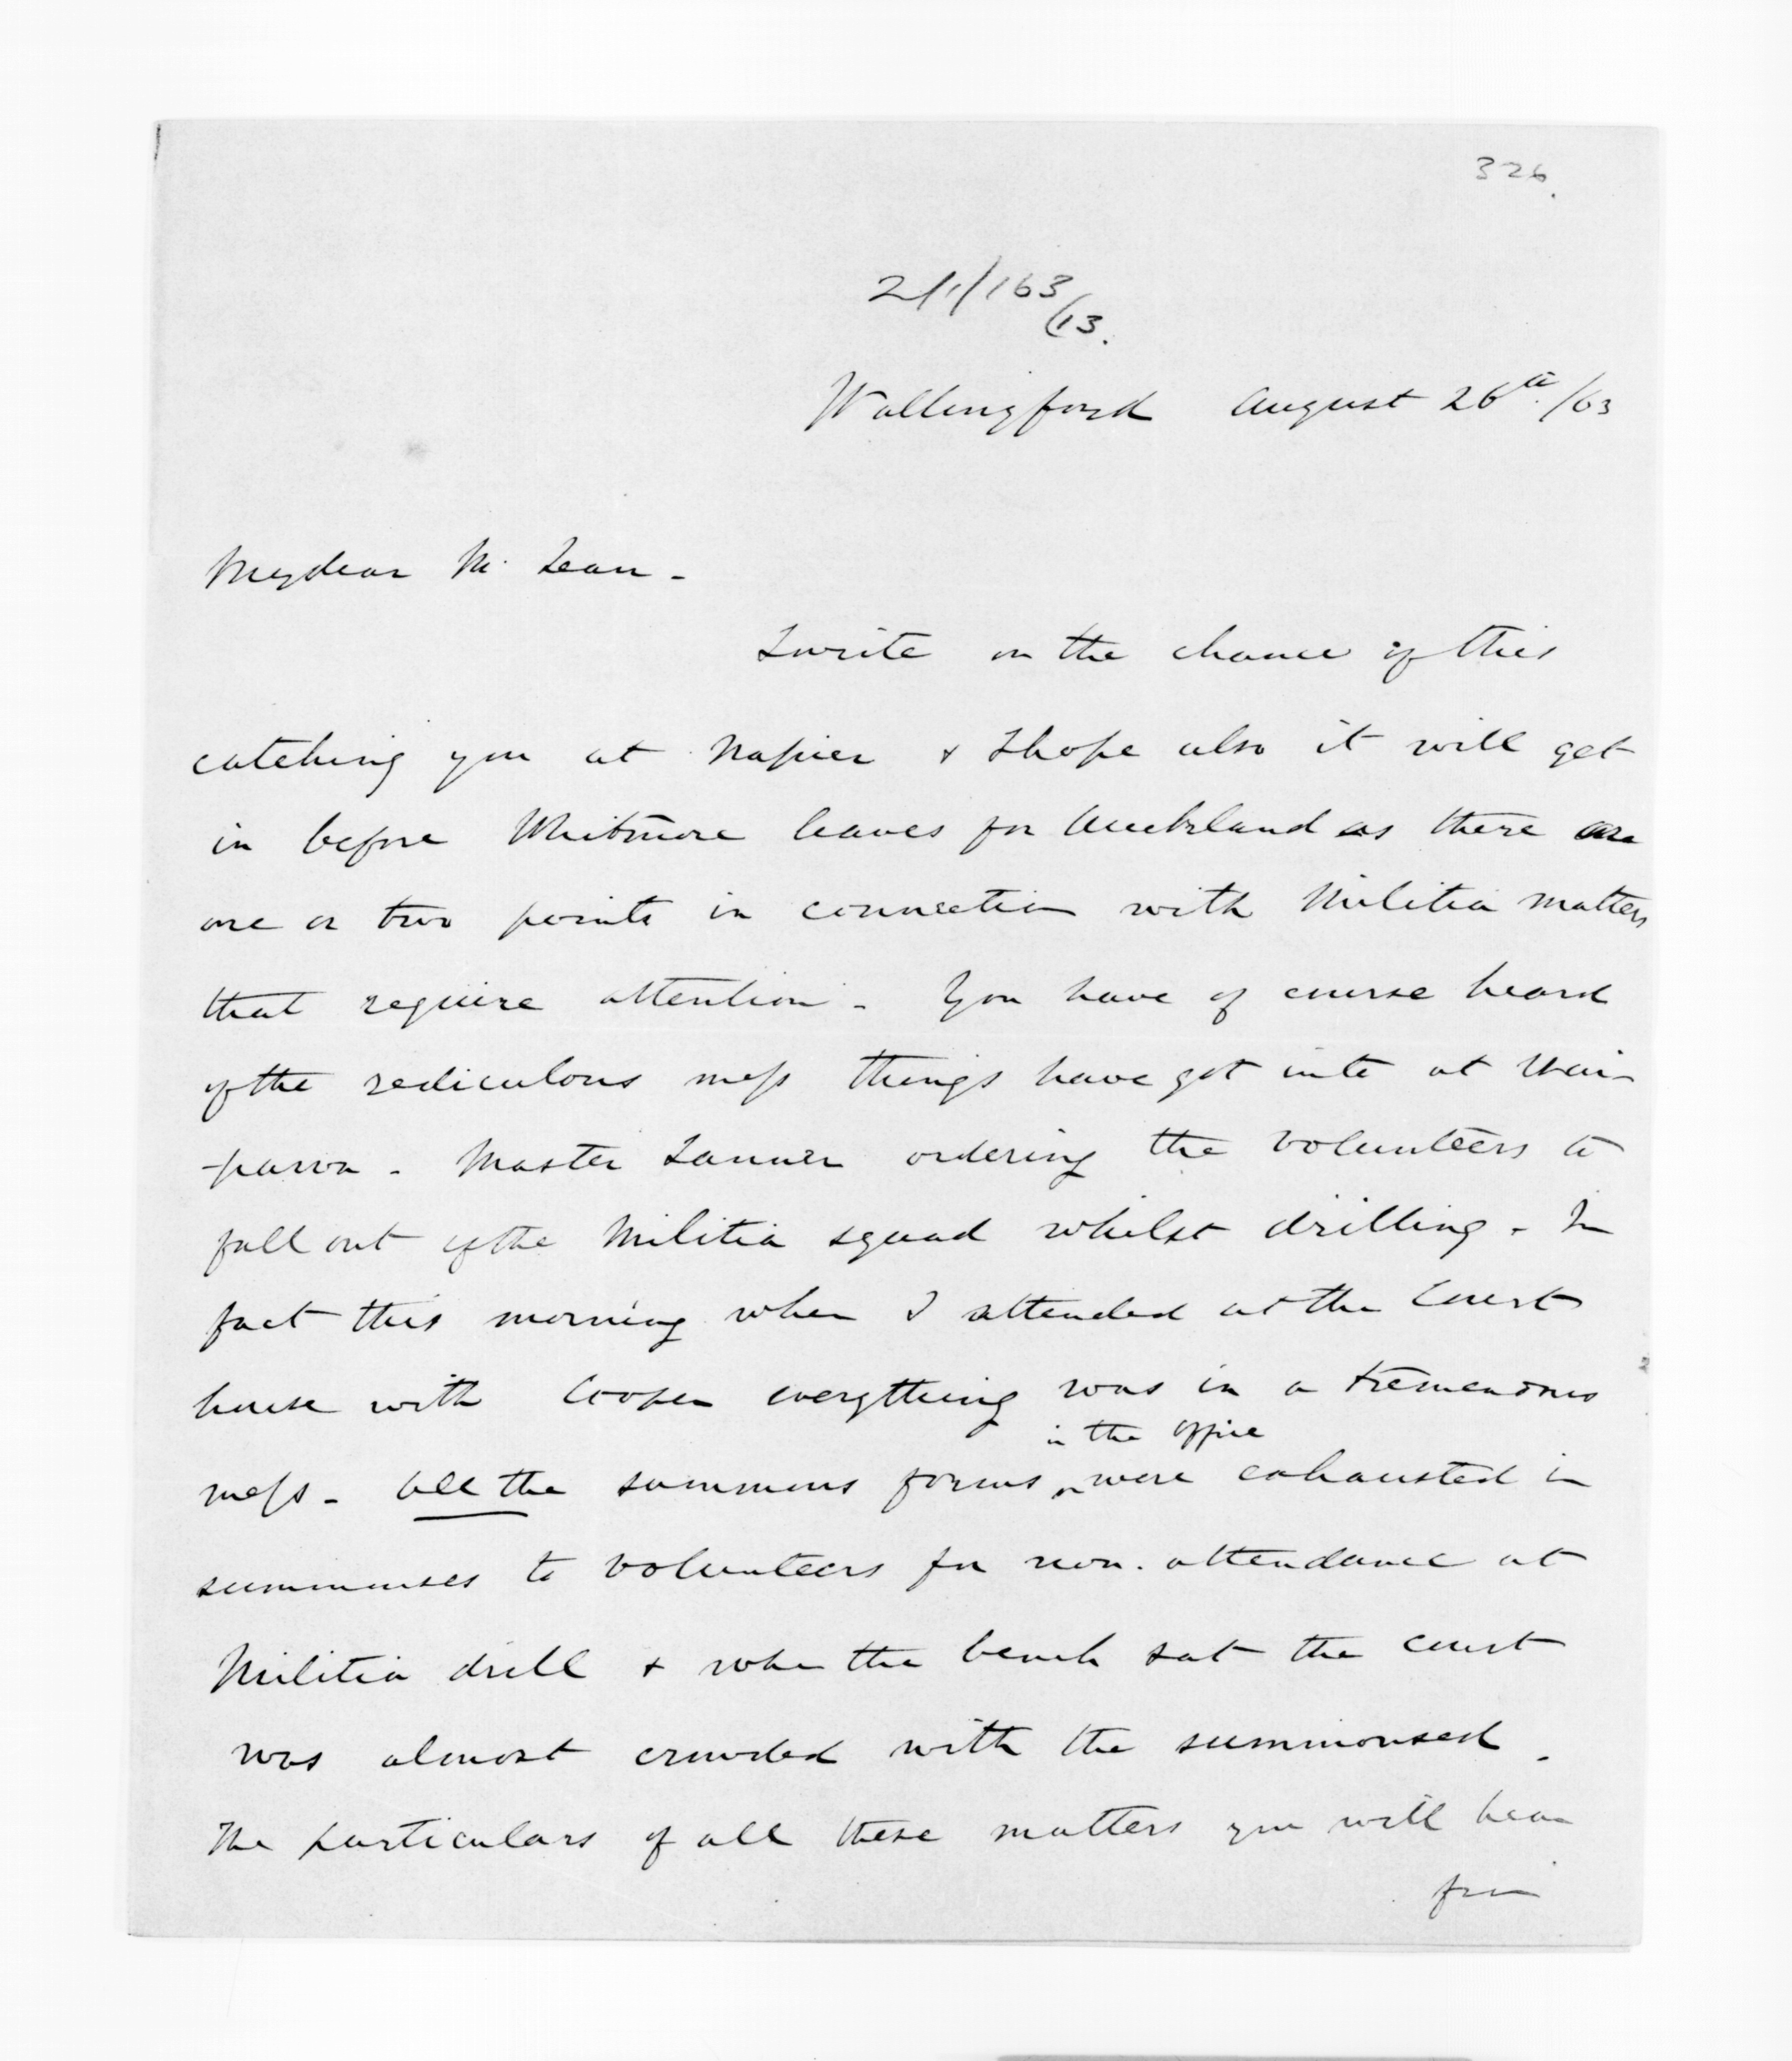 326.
2/1/163
/13.
Wallingford August 26th./63
My dear Mc Lean -
I write on the chance of this
catching you at Napier & I hope also it will get
in before Whitmore leaves for Auckland as there are
one or two points in connection with Militia matters
that require attention - You have of course heard
of the rediculous mess things have got into at Wai-
-pawa - Master Tanner ordering the volunteers to
fall out of the Militia squad whilst drilling - In
fact this morning when I attended at the Court
house with Cooper everything was in a tremendous
in the office
mess - All the summons forms were exhausted in
summonses to volunteers for non. attendance at
Militia drill & when the bench sat the court
was almost crowded with the summonsed .
The particulars of all these matters you will hear
from